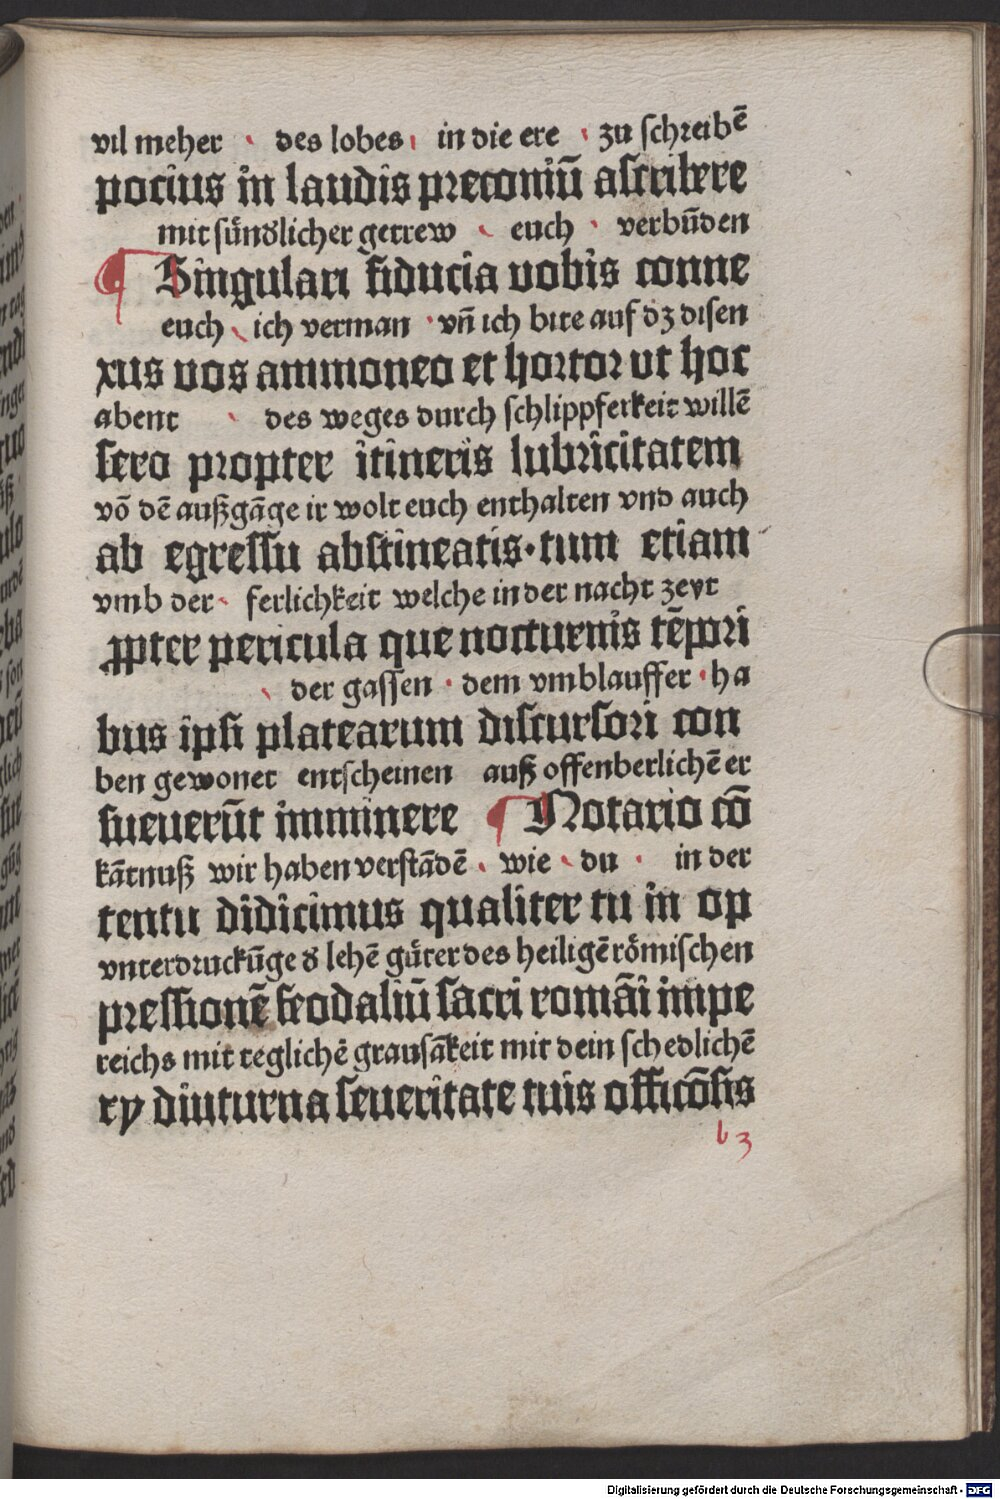 vil meher · des lobes · in die ere · zu schreibē
pocius in laudis preconiū ascribere
mit sünd̕licher getrew · euch · verbūden
¶ Singulari fiducia vobis conne
euch · ich verman · vn̄ ich bite auf dz disen
xus vos ammoneo et hortor vt hoc
abent · des weges durch schlippferkeit willē
sero propter itineris lubricitatem
vō dē außgāge ir wolt euch enthalten vnd auch
ab egressu abstineatis · tum etiam
vmb der · ferlichkeit welche in der nacht zeyt
ꝓpter pericula que nocturnis tēpori
der gassen · dem vmblauffer · ha
bus ipsi platearum discursori con
ben gewonet entscheinen auß offenberlichē er
sueuerūt imminere ¶ Notario cō
kātnuß wir haben verstādē · wie · du · in der
tentu didicimus qualiter tu in op
vnterdruckūge d̕ lehē güter des heiligē römischen
pressionē feodaliū sacri romāi impe
reichs mit teglichē grausākeit mit dein schedlichē
ry diuturna seueritate tuis officōsis
b 3
Digitalisierung gefördert durch die Deutsche Forschungsgemeinschaft - DFG